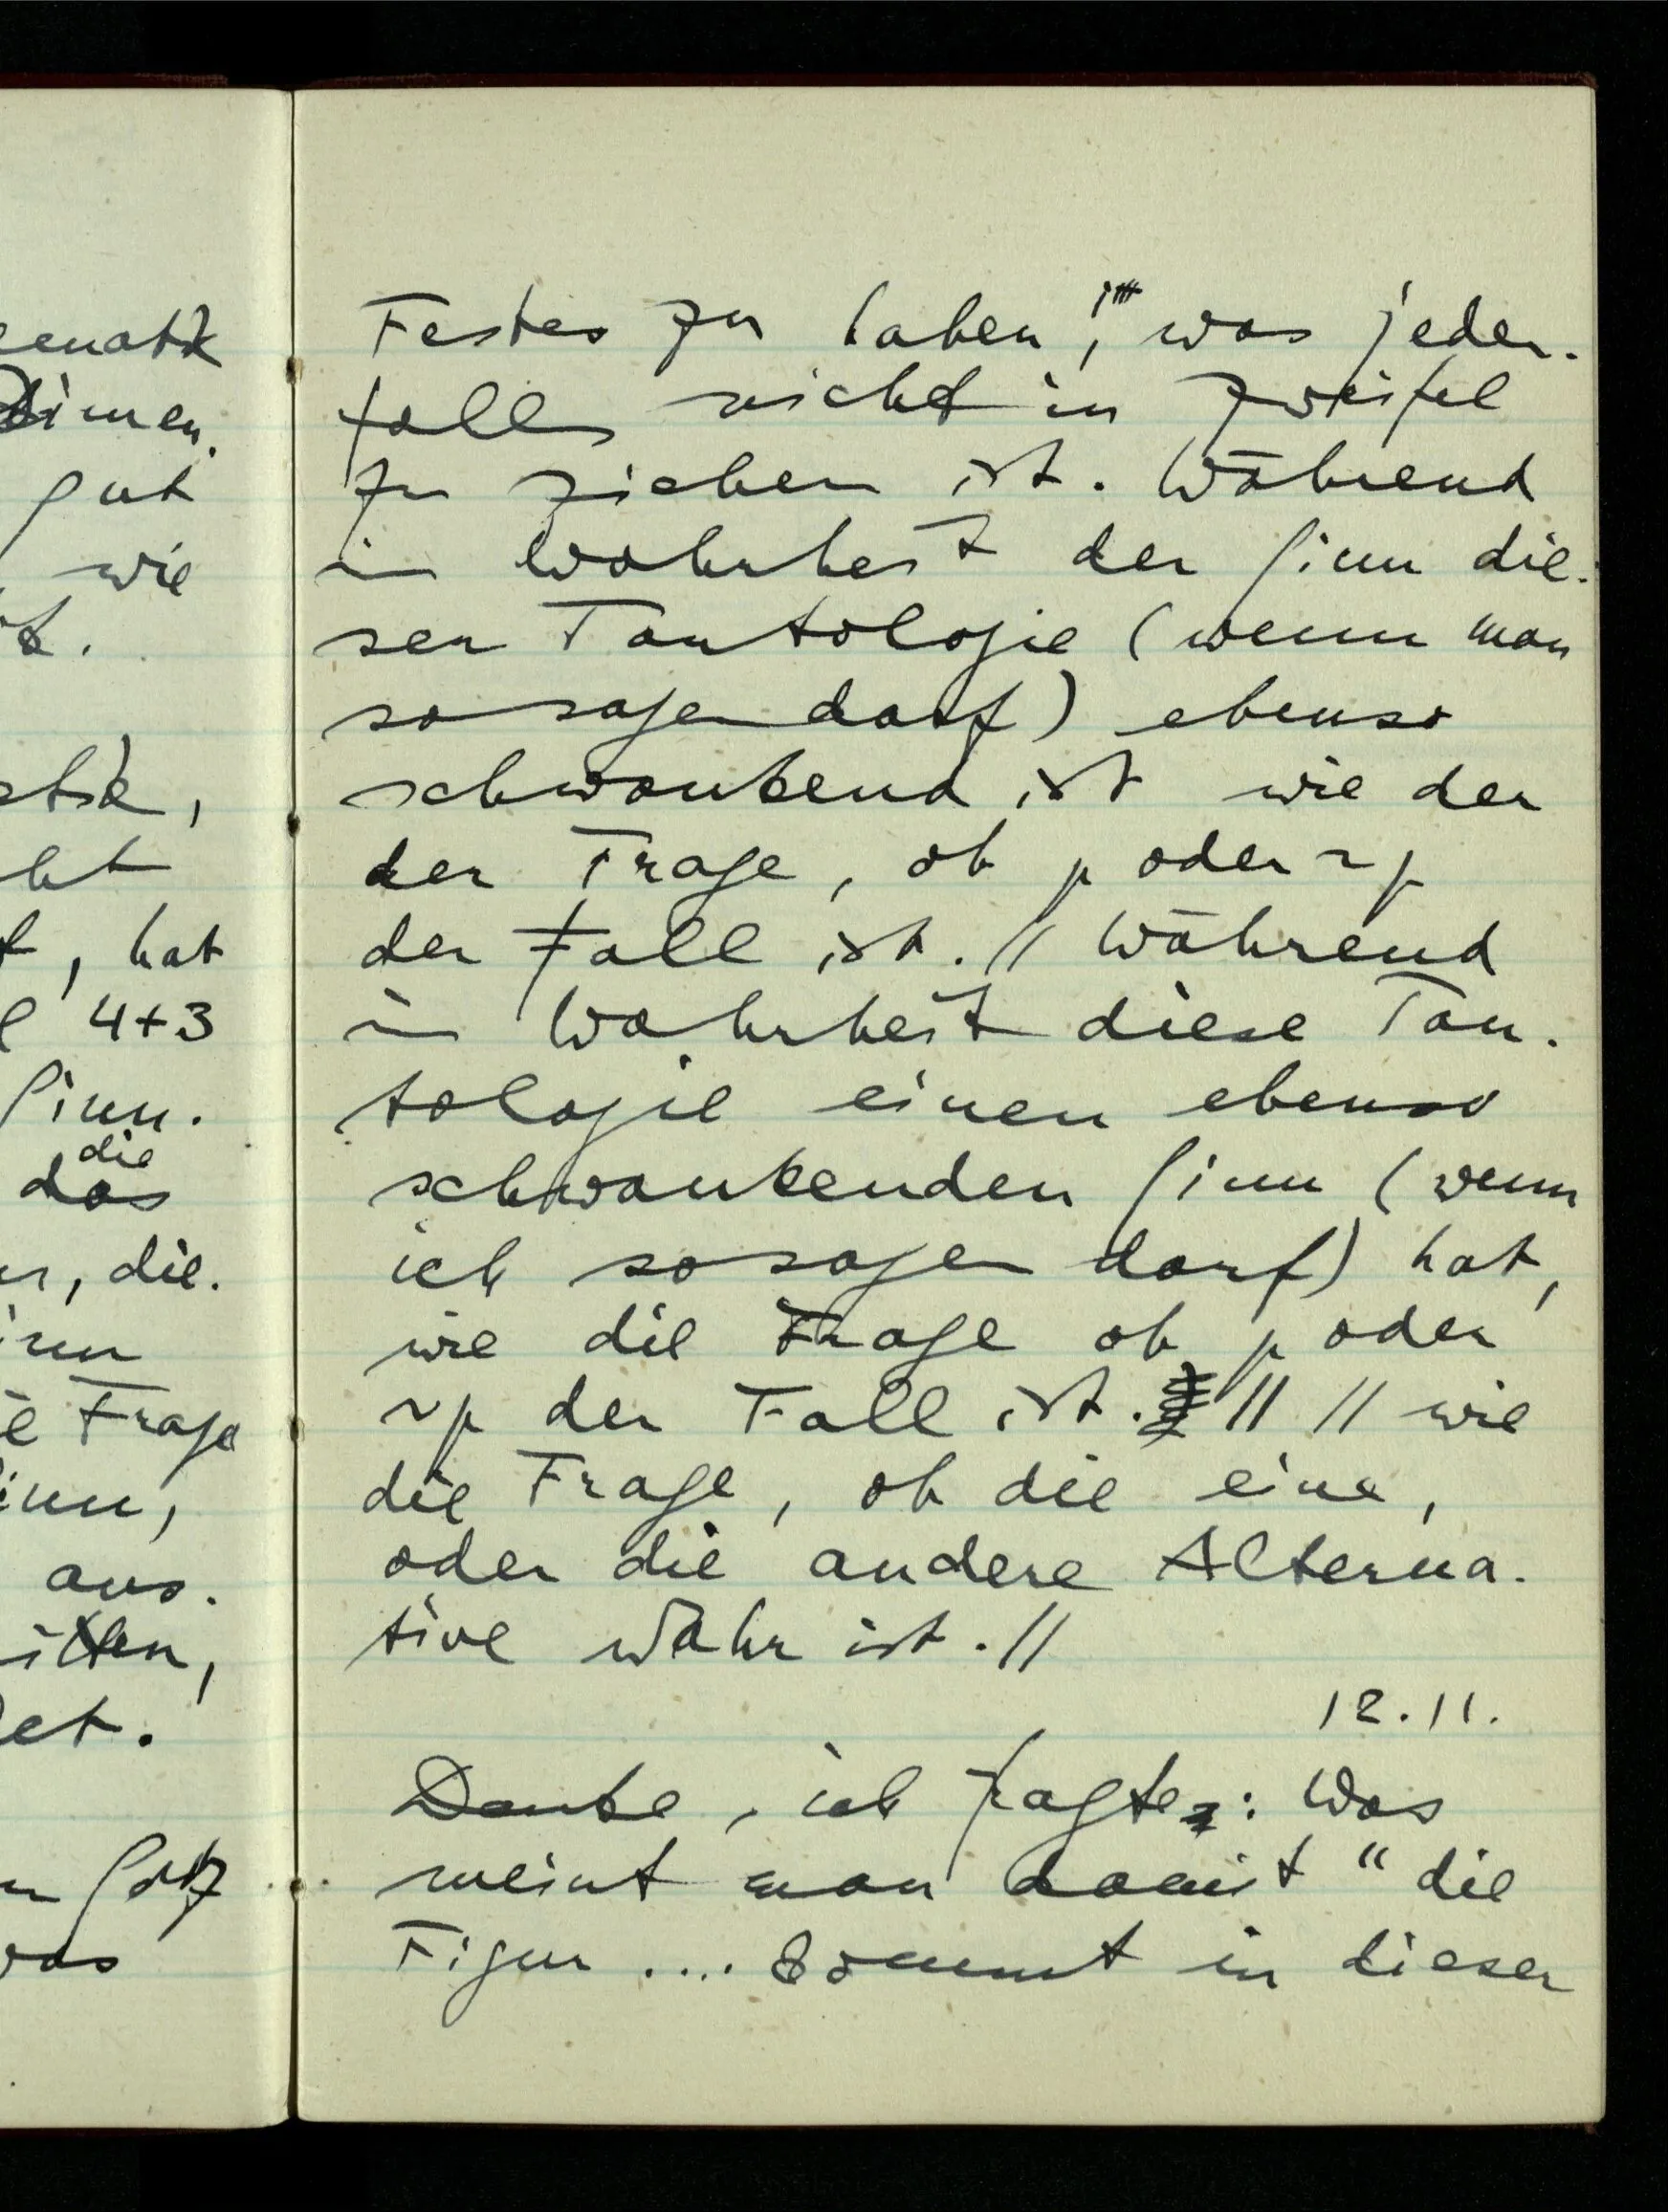 ematik
Dimen.
gut
wie
hat
4+3
Sinn.
die
das
die.
Frage
aus.
Satz
was
Festes zu haben, was jeden.
falls nicht in Zweifel
zu ziehen ist. Während
in Wahrheit der Sinn die.
ser Tautologie (wenn man
so sagen darf) ebenso
schwankend ist wie der
der Frage, ob p oder ~p
der Fall ist. // Während
in Wahrheit diese Tau.
tologie einen ebenso
schwankenden Sinn (wenn
ich so sagen darf) hat,
wie die Frage ob p oder
~p der Fall ist. // // wie
die Frage, ob die eine,
oder die andere Alterna.
tive wahr ist. //
12.11.
Denke, ich fragte: Was
meint man damit “die
Figur .... kommt in dieser